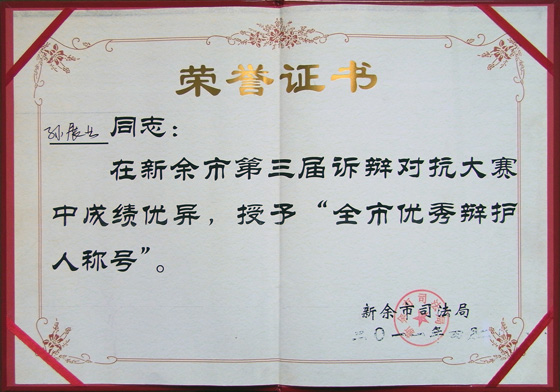 荣誉证书
同志：
在新余市第三届诉辩对抗大赛
中成绩优异，授予“全市优秀辩护
人称号”。
新余市司法局
二〇一一年